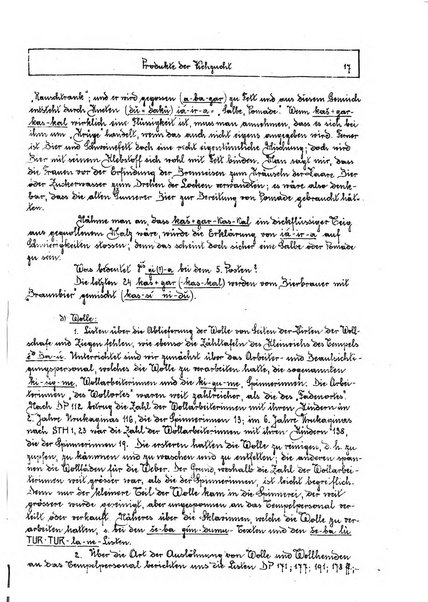 Produkte der Viehzucht 17
"Rauschtrank"; und er wird gegossen (a-ba-gar) zu Fett und aus diesem Gemisch
entsteht durch Kneten (du-dakù) iá-ir-a, "Salbe, Pomade". Wenn kaš+gar-
kas-kal wirklich eine Flüssigkeit ist, muss man annehmen, dass es sich bei
ihm um "Krüge" handelt, wenn das auch nicht eigens angegeben wird. Ferner
ist Bier und Schweinefett doch eine recht eigentümliche Mischung; doch wird
Bier mit seinem Klebstoff sich wohl mit Fett binden. Man sagt mir, dass
die Frauen vor der Erfindung der Brenneisen zum Kräuseln der Haare Bier
oder Zuckerwasser zum Drehen der Locken verwandten; es wäre also denk-
bar, dass die alten Sumerer Bier zur Bereitung von Pomade gebraucht hät-
ten.
Nähme man an, dass kaš+gar-kas-kal ein dickflüssiger Teig
aus gequollenem Malz wäre, würde die Erklärung von iá-ir-a auf
Schwierigkeiten stossen; denn das scheint doch sicher eine Salbe oder Pomade
zu sein.
Was bedeutet gi(?)-a bei dem 5. Posten?
Die letzten 24 kaš+gar (-kas-kal) werden vom Bierbrauer mit
"Braunbier" gemischt (kas-si ni-du).
d) Wolle:
1. Listen über die Ablieferung der Wolle von Seiten der Hirten der Woll-
schafe und Ziegen fehlen, wie ebenso die Zähltafeln des Kleinviehs des Tempels
Ba-ú. Unterrichtet sind wir zunächst über das Arbeiter- und Beaufsichti-
gungspersonal, welches die Wolle zu verarbeiten hatte, die sogenannten
ki-sig-me, Wollarbeiterinnen und die ki-gu-me, Spinnerinnen. Die Arbei-
terinnen "des Wollortes" waren weit zahlreicher, als die des "Fadenortes".
Nach DP 112 betrug die Zahl der Wollarbeiterinnen mit ihren Kindern im
2. Jahre Urukaginas 116, die der Spinnerinnen 13; im 6. Jahre Urukaginas
nach STH 1,23 war die Zahl der Wollarbeiterinnen mit ihren Kindern 138,
die der Spinnerinnen 19. Die ersteren hatten die Wolle zu reinigen, d.h. zu
zupfen, zu kämmen und zu waschen und zu entfetten, die anderen span-
nen die Wollfäden für die Weber. Der Grund, weshalb die Zahl der Wollarbei-
terinnen weit grösser war, als die der Spinnerinnen, ist leicht begreiflich.
Denn nur der kleinere Teil der Wolle kam in die Spinnerei, der weit
grössere wurde gereinigt, aber ungesponnen an das Tempelpersonal ver-
teilt oder verkauft. Näheres über die Sklavinnen, welche die Wolle zu ver-
arbeiten hatten, s. bei den še-ba gim-dumu-Texten und den še-ba lú
TUR-TUR-la-ne-Listen.
2. Über die Art der Auslöhnung von Wolle und Wollhemden
an das Tempelpersonal berichten uns die Listen DP 171; 177; 191; 178 ff;-